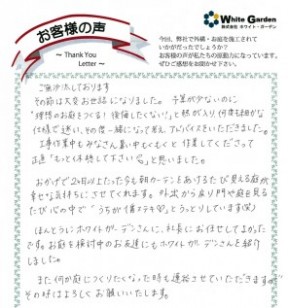 お客様の声
～ Thank You
Letter ～
White Garden
株式会社 ホワイト・ガーデン
今回、弊社で外構・お庭を施工されて
いかがだったでしょうか？
お客様の声が私たちの原動力になっています。
ぜひご感想をお聞かせ下さい。
ご無沙汰しております
その節は大変お世話になりました。予算が少ないのに
"理想のお庭をつくる！後悔したくない！"と熱が入り、何度も細かな
仕様で迷い、その度一緒になって考えアドバイスをいただきました。
工事作業中もみなさん暑い中もくもくと作業してくださって
正直「もっと休憩して下さい」と思いました。
おかげで2ヶ月以上たった今も朝カーテンをあけるたび見える庭が
幸せな気持ちにさせてくれます。外出から戻り門や庭を見る
たび心の中で「うちが1番ステキ」とうっとりしています(笑)
ほんとうにホワイトガーデンさんに、お任せしてよかった
です。お庭を検討中のお友達にもホワイトガーデンさんを紹介
しました。
また何か庭につくりたくなった時も連絡させていただきます
その時はよろしくお願いいたします。